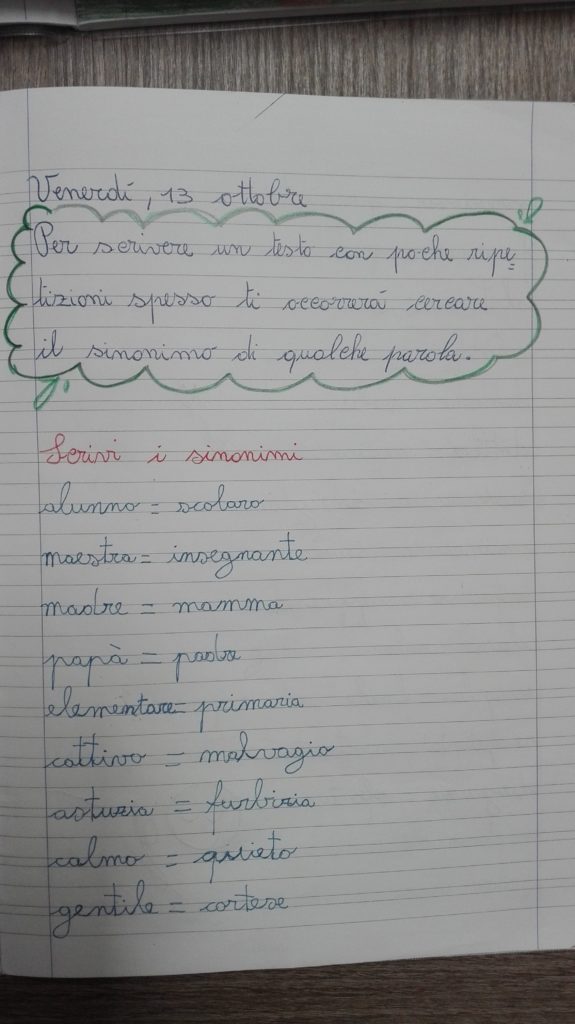 Venerdí, 13 ottobre
Per scrivere un testo con poche ripe=
tizioni spesso ti occorrerá cercare
il sinonimo di qualche parola.
Scrivi i sinonimi
alunno = scolaro
maestra = insegnante
madre = mamma
papà = padre
elementare = primaria
cattivo = malvagio
astuzia = furbizia
calmo = quieto
gentile = cortese